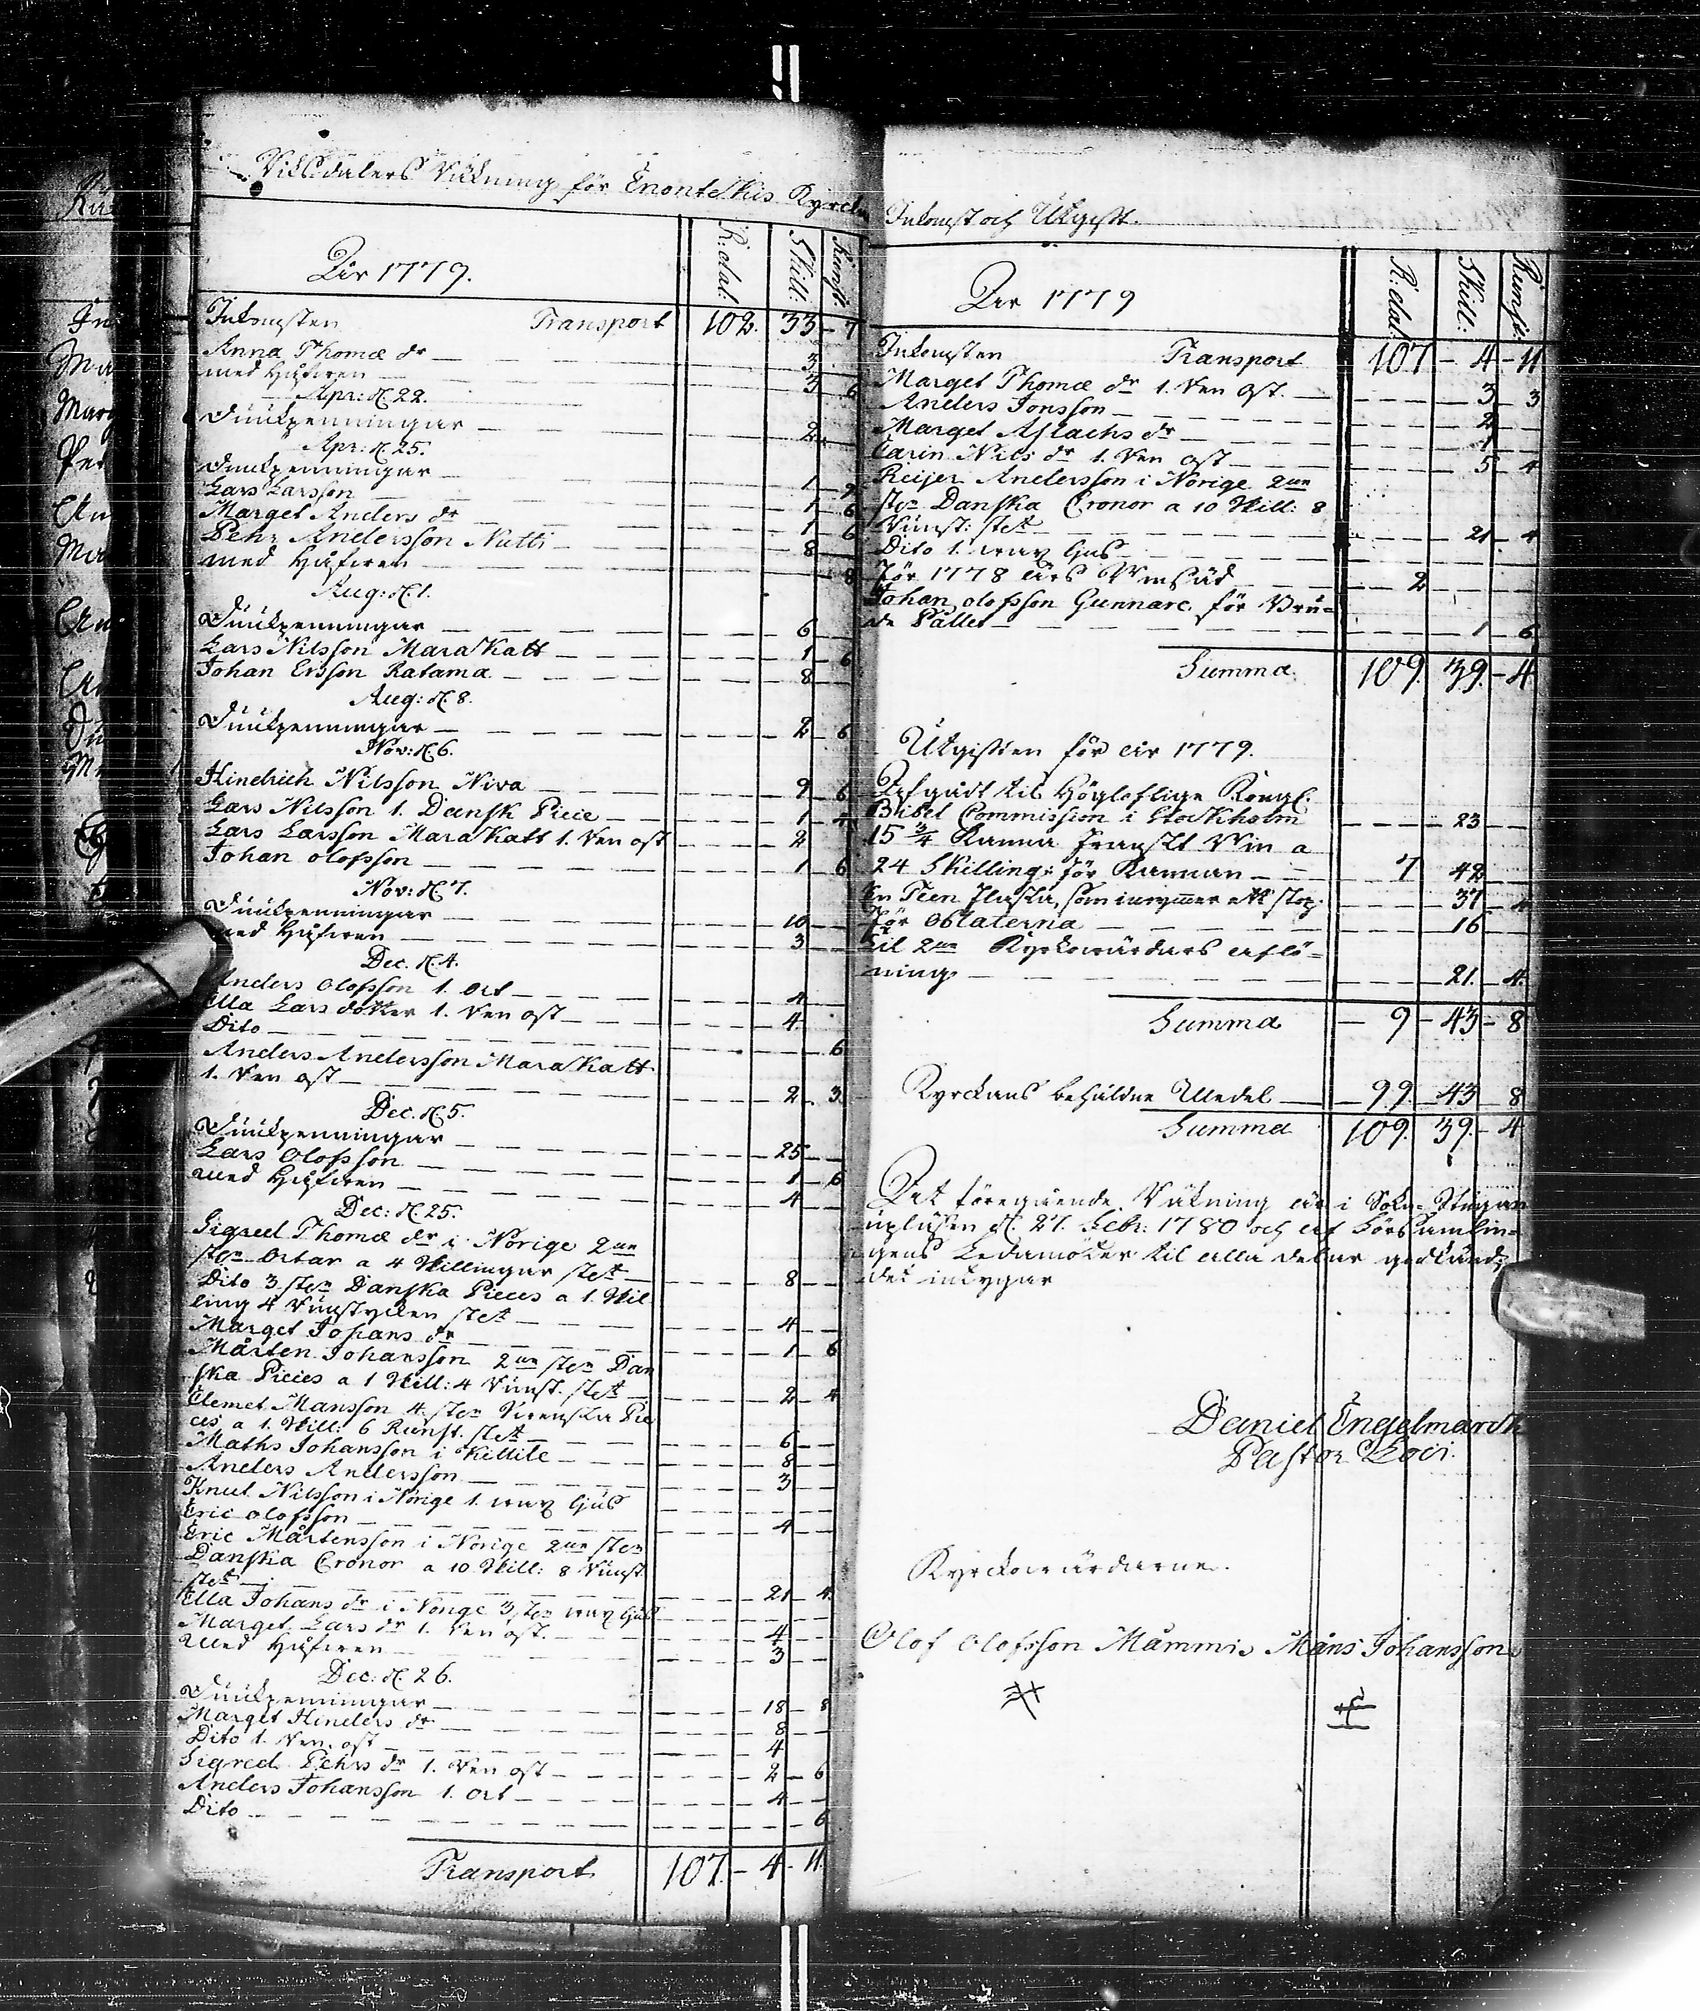 Riksdalers Räkning för Enontekis Kyrck
År 1779.
R:dal: Skill: Runst:
Inkomsten Transport 102. 33 - 7
Anna Thomæ dr 3
med Håfwen 3 6
Apr: d. 22.
Duukpenningar 2
Apr: d. 25.
Duukpenningar 1
Lars Larsson 1 6
Marget Anders dr 1 6
Pehr Andersson Nutti 8
med Håfwen 8
Aug: d. 1.
Duukpenningar 6
Lars Nilsson Marakatt 1 6
Johan Ersson Ratama 8
Aug: d. 8.
Duukpenningar 2 6
Nov: d. 6.
Hindrich Nilsson Niva 9 6
Lars Nilsson 1. Dansk Piece 1 4
Lars Larsson Marakatt 1. Ren ost 2
Johan olofsson 1 6
Nov: d. 7.
Duukpenningar 10
med Håfwen 3
Dec. d. 4.
Anders Olofsson 1. Ort 4
Ella Lars dotter 1. Ren ost 4
Dito 6
Anders Andersson Marakatt
1. Ren ost 2. 3
Dec. d. 5.
Duukpenningar 25
Lars Olofsson 1 6
med Håfwen 4
Dec: d. 25.
Sigred Thomæ dr i Norige 2ne
stn Ortar a 4 Skillingar stt 8
Dito 3 stn Danska Pieces a 1. Skil
ling 4 Runstycken stt 4
Marget Johans dr 1 6
Mårten Johansson 2ne stn Dan
ska Pieces a 1 Skill: 4 Runst. stt 2 4
Clemet Mansson 4 stn Svenska Pie
ces a 1. Skill: 6 Runst. stt 6
Maths Johansson i Kittile 8
Anders Andersson 3
Knut Nilsson i Norige 1. wax ljus
Eric olofsson 4
Eric Mårtensson i Norige 2ne stn
Danska Cronor a 10 Skill: 8 Runst
stt 21 4
Ella Johans dr i Norige 3 stn wax ljus
Marget Lars dr 1. Ren ost. 4
med Håfwen 3
Dec: d. 26.
Duukpenningar 18 8
Marget Hinders dr 8
Dito 1. Ren ost 4
Sigred Pehrs dr 1. Ren ost 2 6
Anders Johansson 1. Ort 4
Dito 6
Transport 107 - 4 - 11
Inkomst och Utgift.
År 1779
R:dal: Skill: Runst:
Inkomsten Transport 107 - 4 - 11
Marget Thomæ dr 1. Ren ost. 3 3
Anders Jonsson 2
Marget Aslachs dr 1
Carin Nils dr 1. Ren ost 5 4
Reijer Andersson i Norige 2ne
stn Danska Cronor a 10 Skill: 8
Runst: stt 21 4
Dito 1. wax ljus
För 1778 års 2
Johan olofsson Gunnare för Bru=
de Pallet 1 6
Summa. 109. 39. - 4
Utgiften för år 1779.
Afgådt til Höglofliga Kongl.
Bibel Commission i Stockholm 23
15 3/4 Kanna Franskt Win a
24 Skilling: för Kannan 7 42
En Teen Flaska, som inrymmer ett stop. 37 4
För Oblaterna 16
Til 2ne Kyrkowärdars aflö=
ning 21. 4.
Summa 9 - 43 - 8
Kyrckans behåldne Medel 99 43 8
Summa 109. 39. - 4
Det föregående Räkning är i Sokn=Stugan
upläsen d. 27. Febr: 1780 och af Församlin=
gens Ledamöter til alla delar godkänd,
det intygar
Daniel Engelmarck
Pastor Loci.
Kyrckowärdarne.
Olof Olofsson Mämmis Måns Johansson